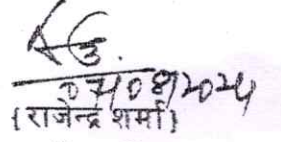 07/08/2024
(राजेन्द्र शर्मा)